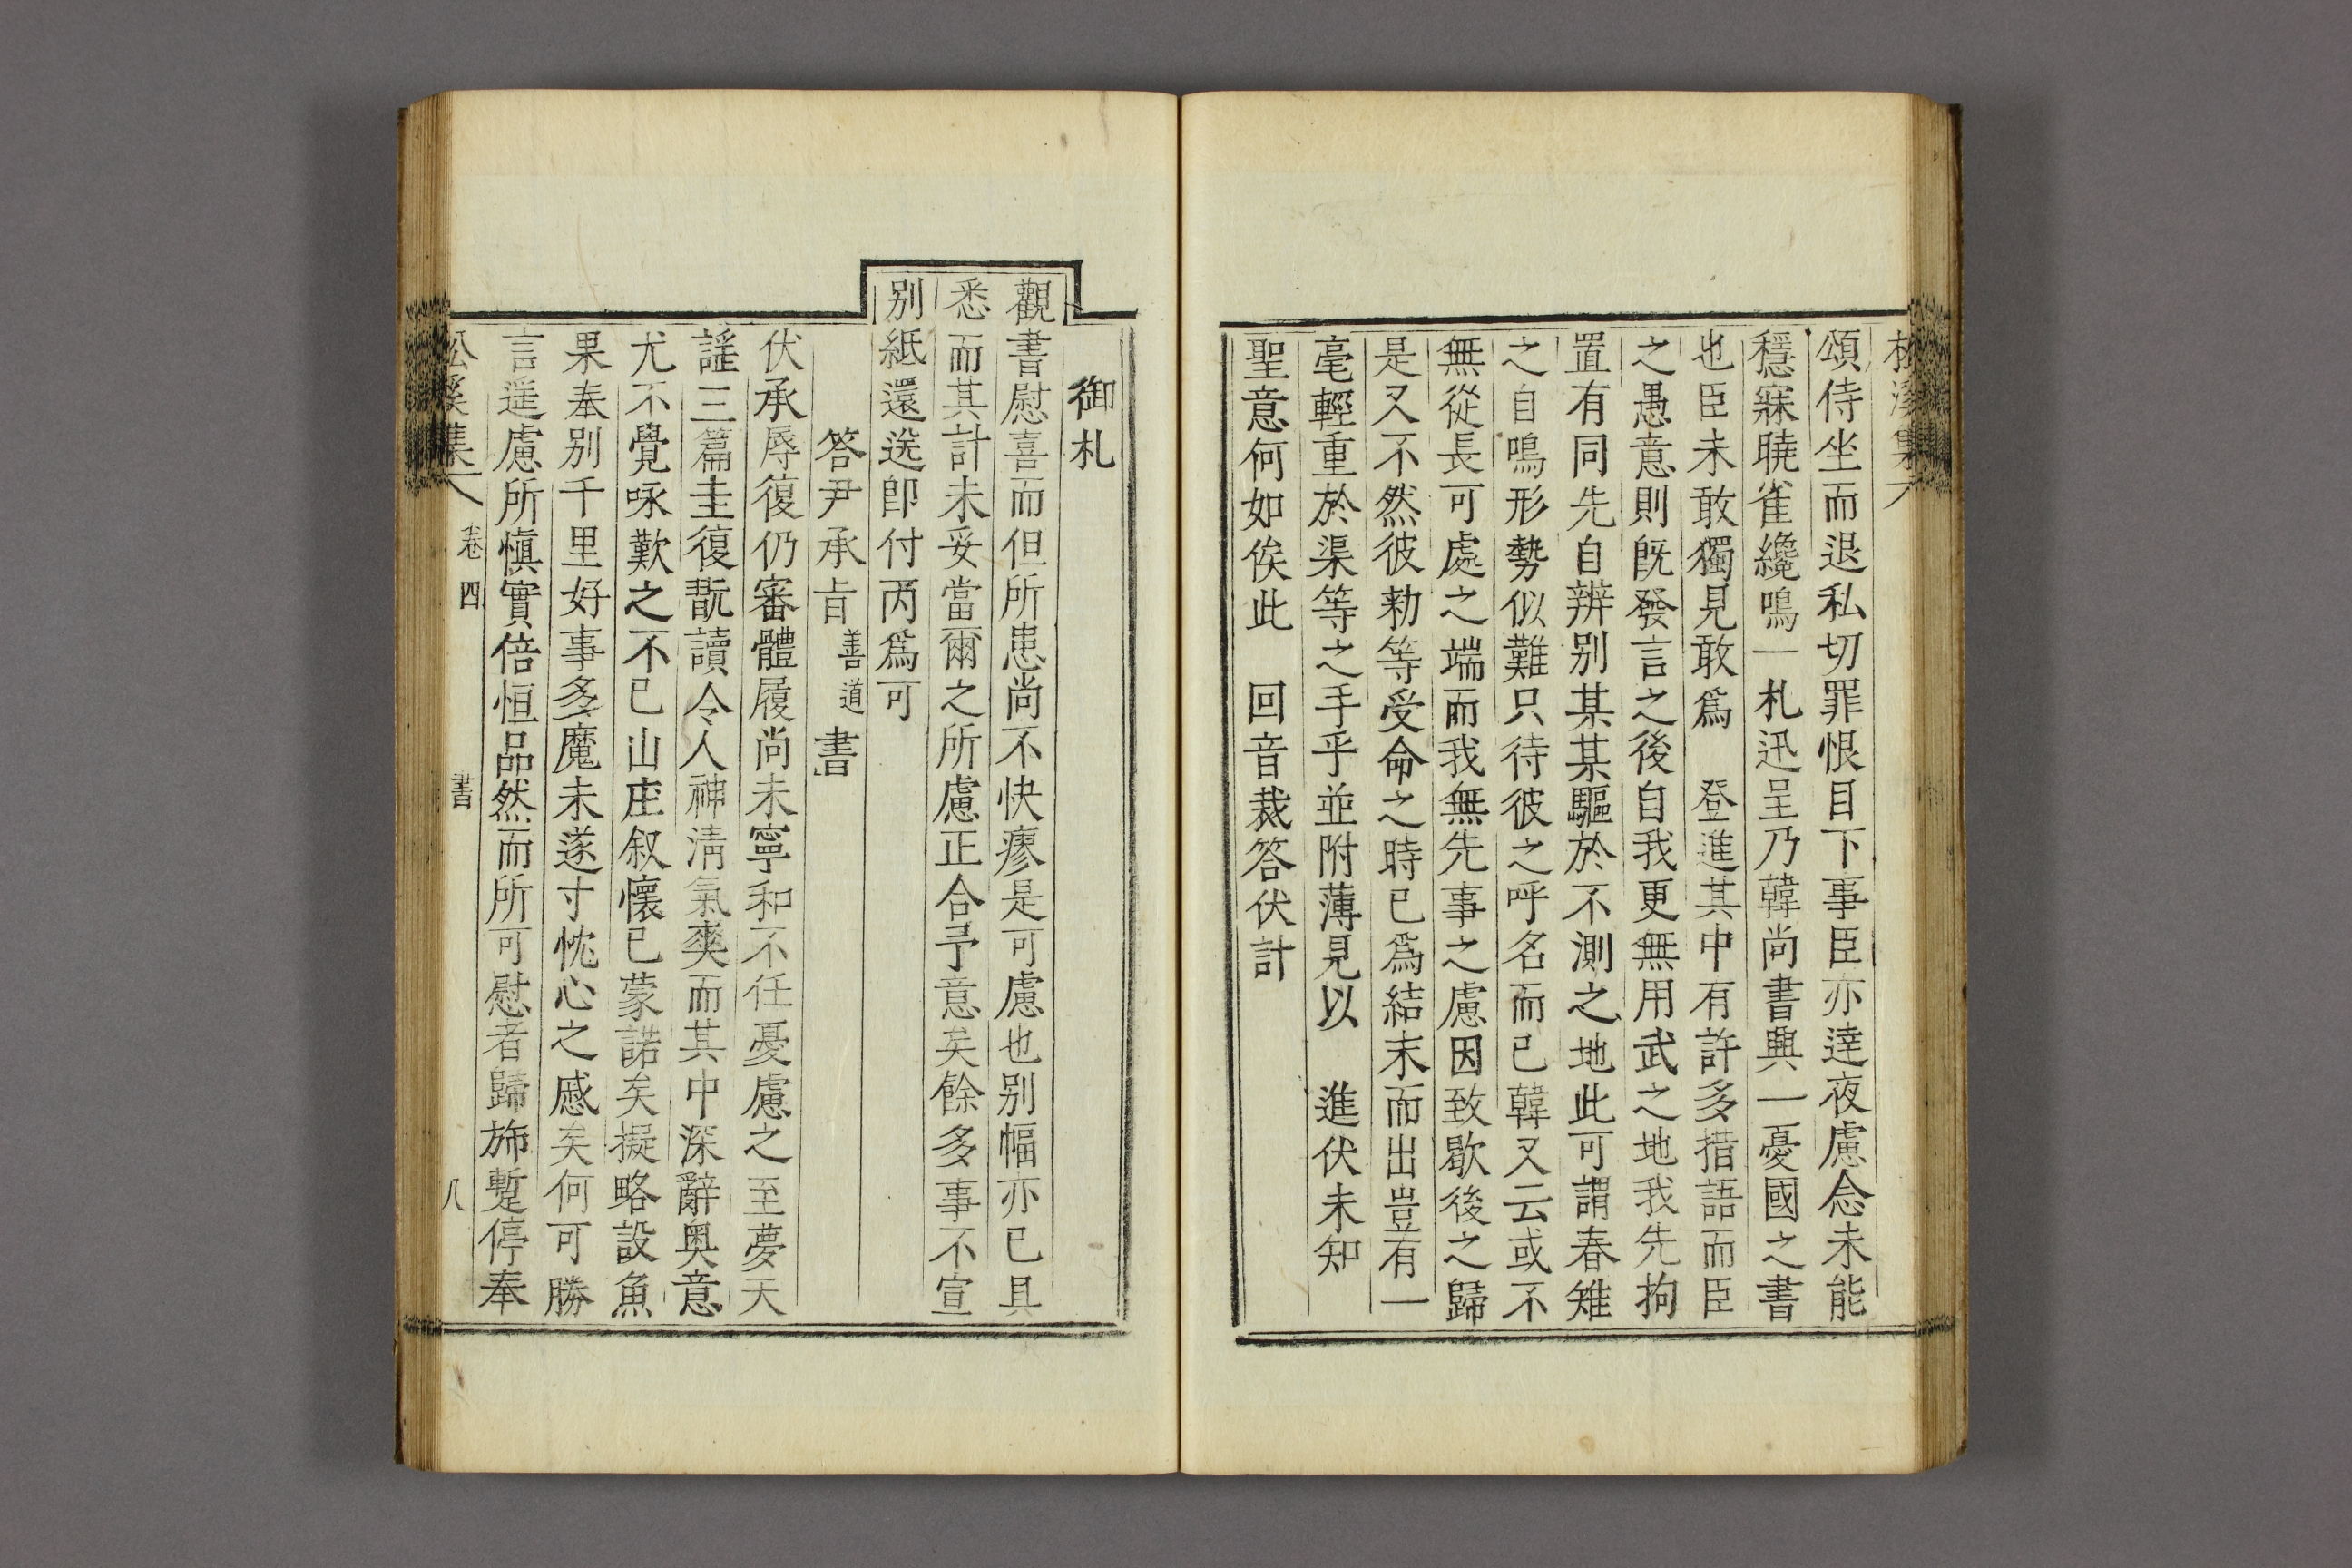 松溪集
頌侍坐而退私切罪恨目下事臣亦達夜慮念未能
穩寐曉雀纔鳴一札迅呈乃韓尚書興一憂國之書
也臣未敢獨見敢爲　登進其中有許多措語而臣
之愚意則旣發言之後自我更無用武之地我先拘
置有同先自辨别某某驅於不測之地此可謂春雉
之自鳴形勢似難只待彼之呼名而已韓又云或不
無從長可處之端而我無先事之慮因致歇後之歸
是又不然彼勑等受命之時已爲結末而出豈有一
毫輕重於渠等之手乎並附薄見以　進伏未知
聖意何如俟此　回音裁答伏計
御札
觀書慰喜而但所患尚不快瘳是可慮也别幅亦已具
悉而其計未妥當爾之所慮正合予意矣餘多事不宣
别紙還送卽付丙爲可
答尹承旨善道書
伏承辱復仍審體履尚未寧和不任憂慮之至夢天
謡三篇圭復翫讀令人神淸氣爽而其中深辭奥意
尤不覺咏歎之不已山庄叙懷已蒙諾矣擬略設魚
果奉别千里好事多魔未遂寸忱心之慼矣何可勝
言遥慮所愼實倍恒品然而所可慰者歸斾蹔停奉
松溪集 卷四 書 八